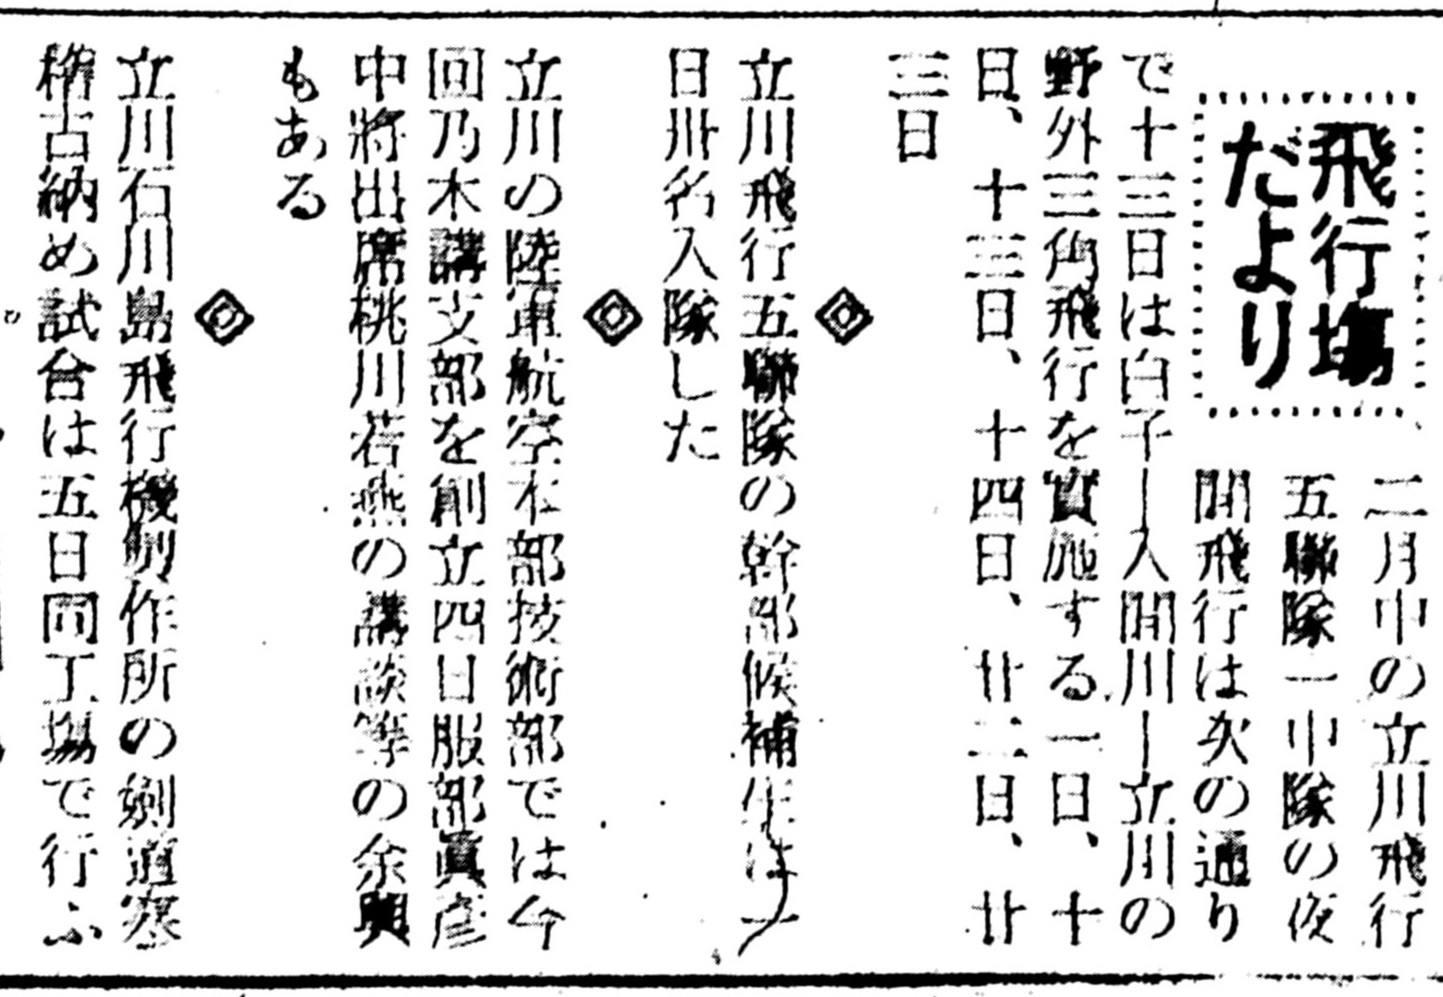 飛行場
だより
二月中の立川飛行
五聯隊一中隊の夜
間飛行は次の通り
で十三日は白子―入間川―立川の
野外三角飛行を實施する一日、十
日、十三日、十四日、廿二日、廿
三日
◇
立川飛行五聯隊の幹部候補生は一
日卅名入隊した
◇
立川の陸軍航空本部技術部では今
回乃木講支部を創立四日服部眞彦
中將出席桃川若燕の講談等の余興
もある
◇
立川石川島飛行機製作所の劍道寒
稽古納め試合は五日同工場で行ふ